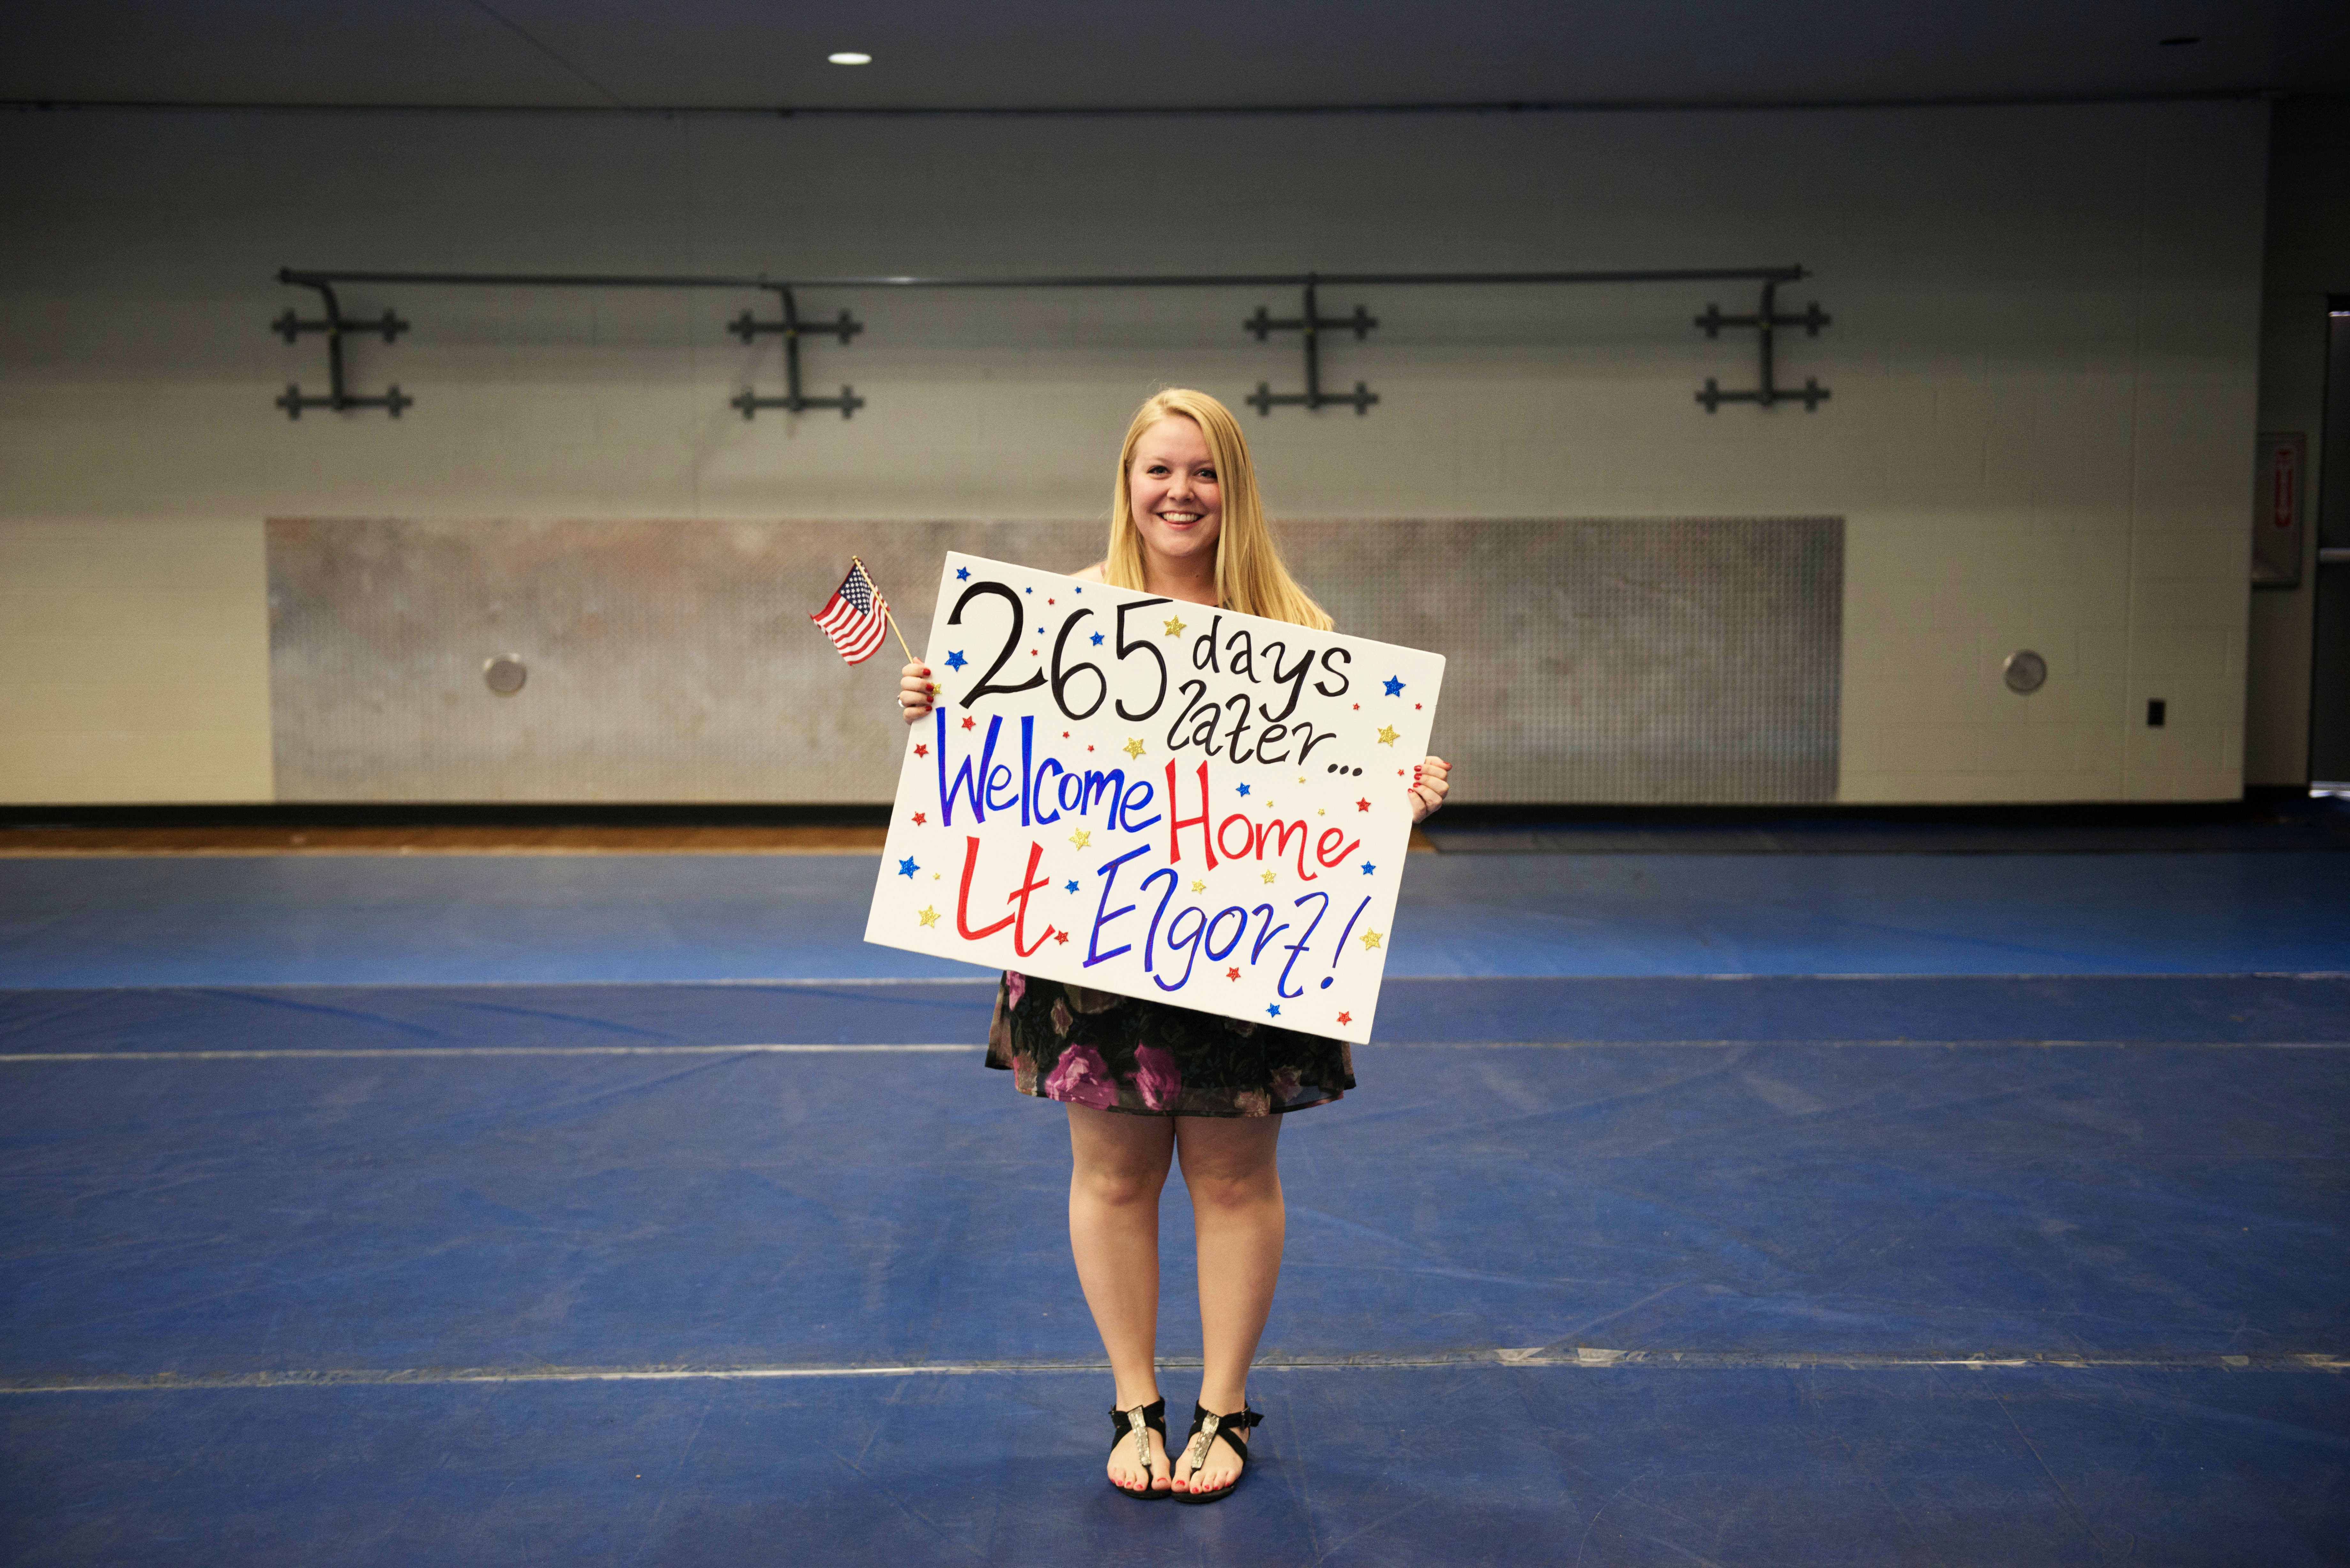 265 days
later...
Welcome Home
Lt Elgort!